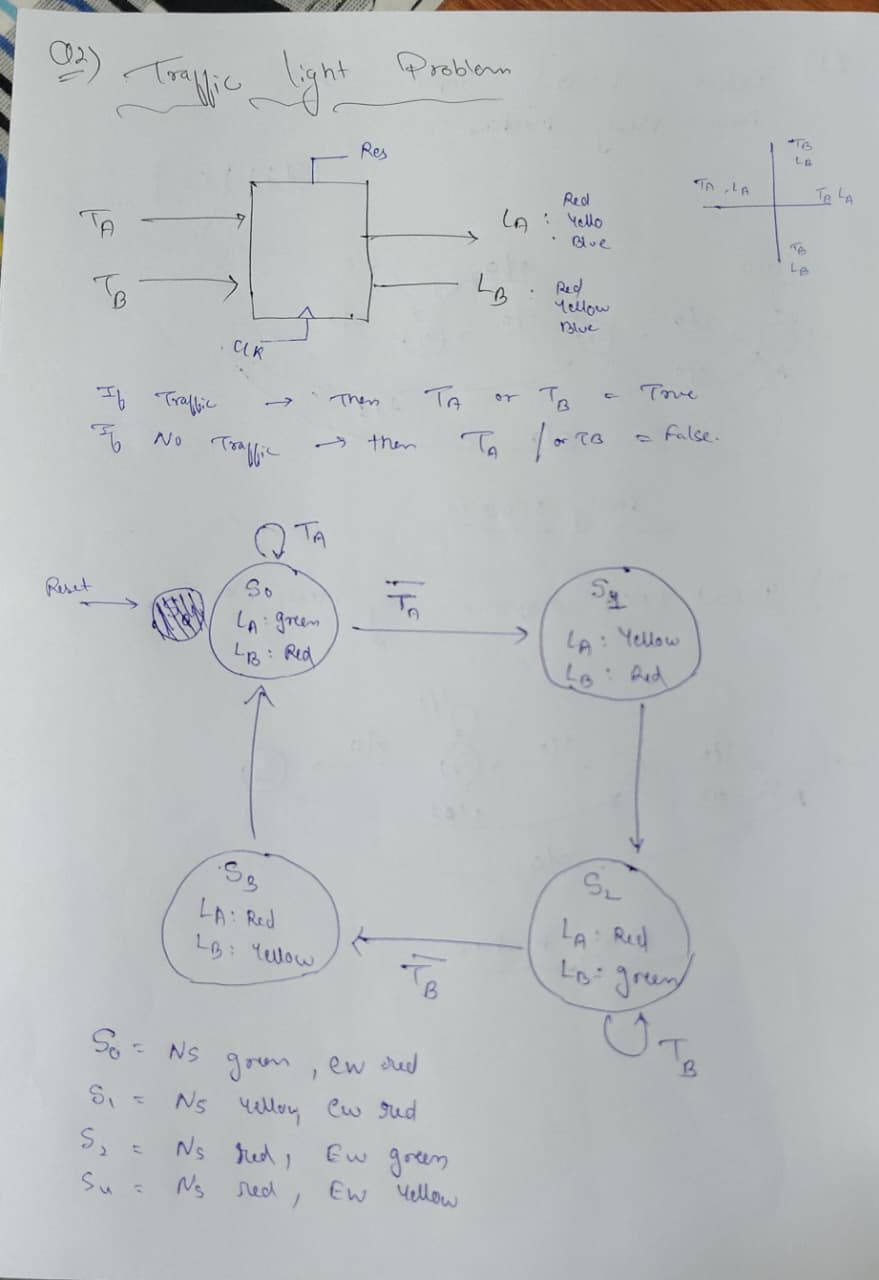 Q2) Traffic light Problem
Res
TA
TB
CLK
LA : Red
Yello
Blue
LB : Red
Yellow
Blue
TB
LB
TA , LA
TA LA
TB
LB
If Traffic → Then TA or TB = True
If No Traffic → then TA / or TB = False.
TA
Reset
S0
LA : green
LB : Red
T̅A̅
LA : Yellow
LB : Red
S3
LA : Red
LB : Yellow
T̅B̅
S2
LA : Red
LB = green
TB
S0 = NS green , EW red
S1 = NS Yellow, EW red
S2 = NS red, EW green
S4 = NS red, EW Yellow